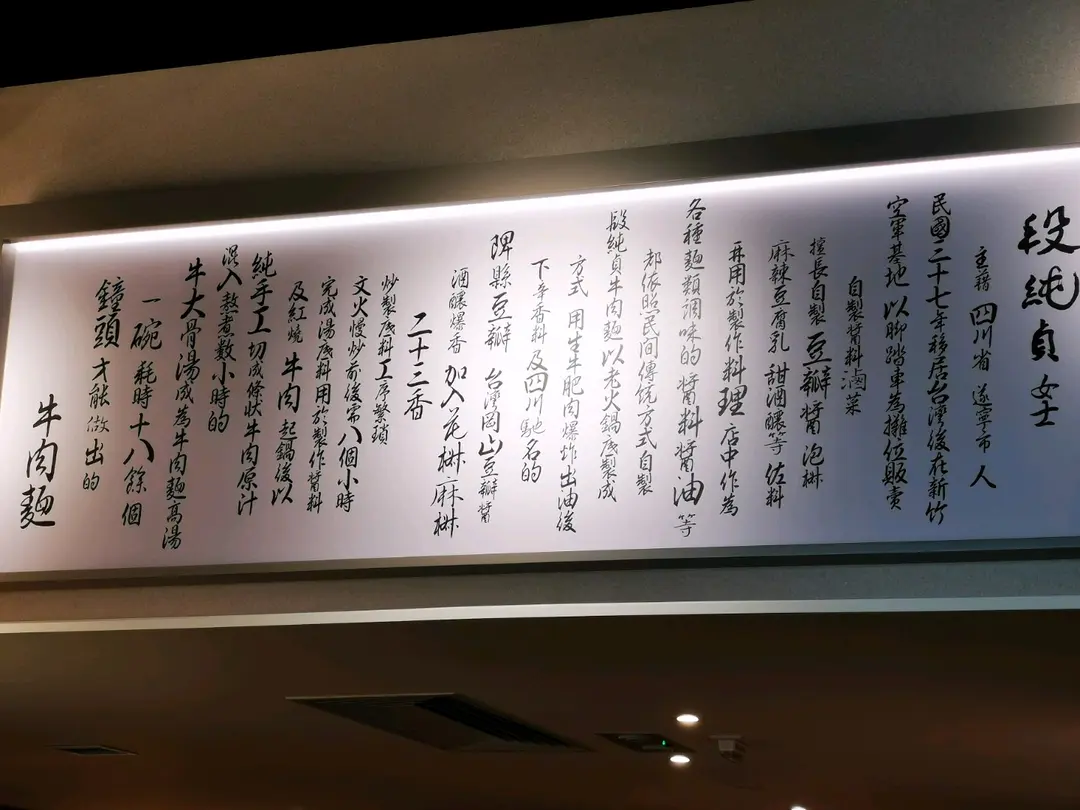 段純貞 女士
主籍 四川省 遂寧市 人
民國三十七年移居台灣後在新竹
空軍基地 以腳踏車為攤位販賣
自製醬料滷菜
擅長自製 豆瓣醬 泡椒
麻辣豆腐乳 甜酒釀等 佐料
再用於製作料理 店中作為
各種麵類調味的 醬料醬油等
都依照民間傳統方式自製
段純貞牛肉麵以老火鍋底製成
方式 用生牛肥肉爆炸出油後
下辛香料及四川馳名的
郫縣豆瓣 台灣岡山豆瓣醬
酒釀爆香 加入花椒麻椒
二十三香
炒製底料工序繁瑣
文火慢炒前後需八個小時
完成湯底料用於製作醬料
及紅燒 牛肉 起鍋後以
純手工 切成條狀牛肉原汁
混入熬煮數小時的
牛大骨湯成為牛肉麵高湯
一碗 耗時十八餘個
鐘頭 才能做出的
牛肉麵